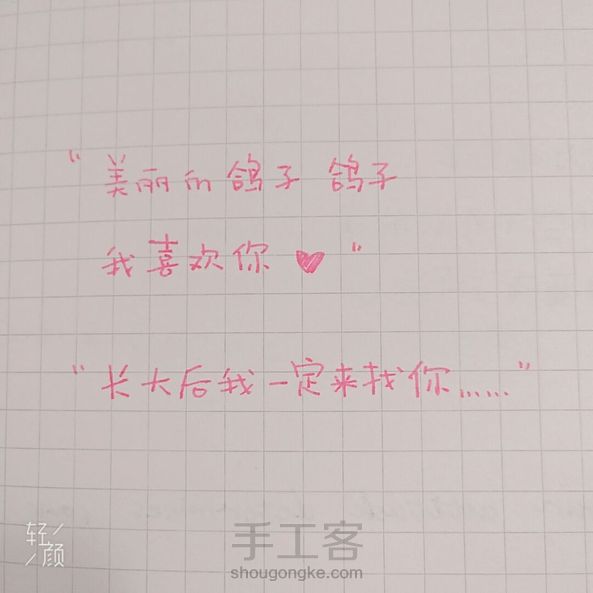 “美丽的鸽子 鸽子
我喜欢你 ♥”
“长大后我一定来找你……”
轻/
/颜
手工客
shougongke.com